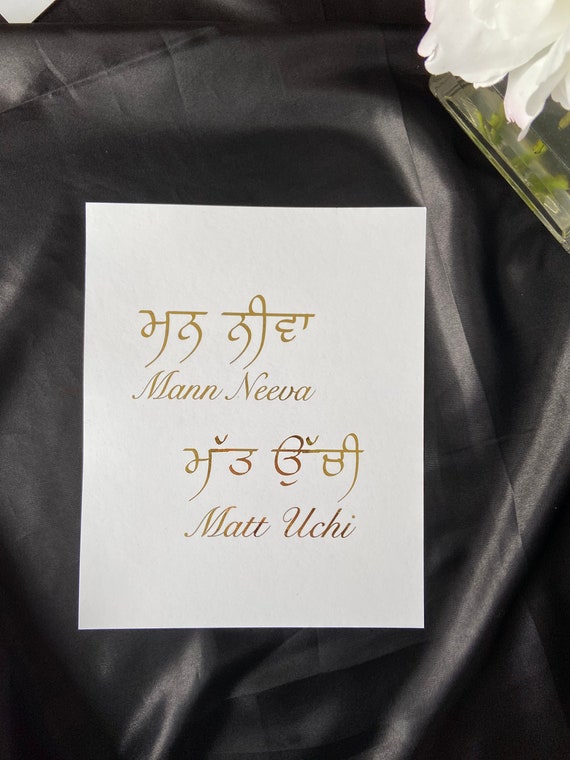 ਮਨ ਨੀਵਾ
Mann Neeva
ਮੱਤ ਉੱਚੀ
Matt Uchi